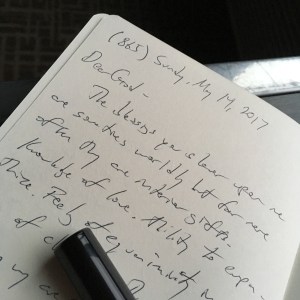 (865) Sunday, May 14, 2017
Dear God -
The blessings you shower upon me
are sometimes worldly but far more
often they are interior gifts.
Knowledge of love. Ability to
Thine. Feels of equanimity
of